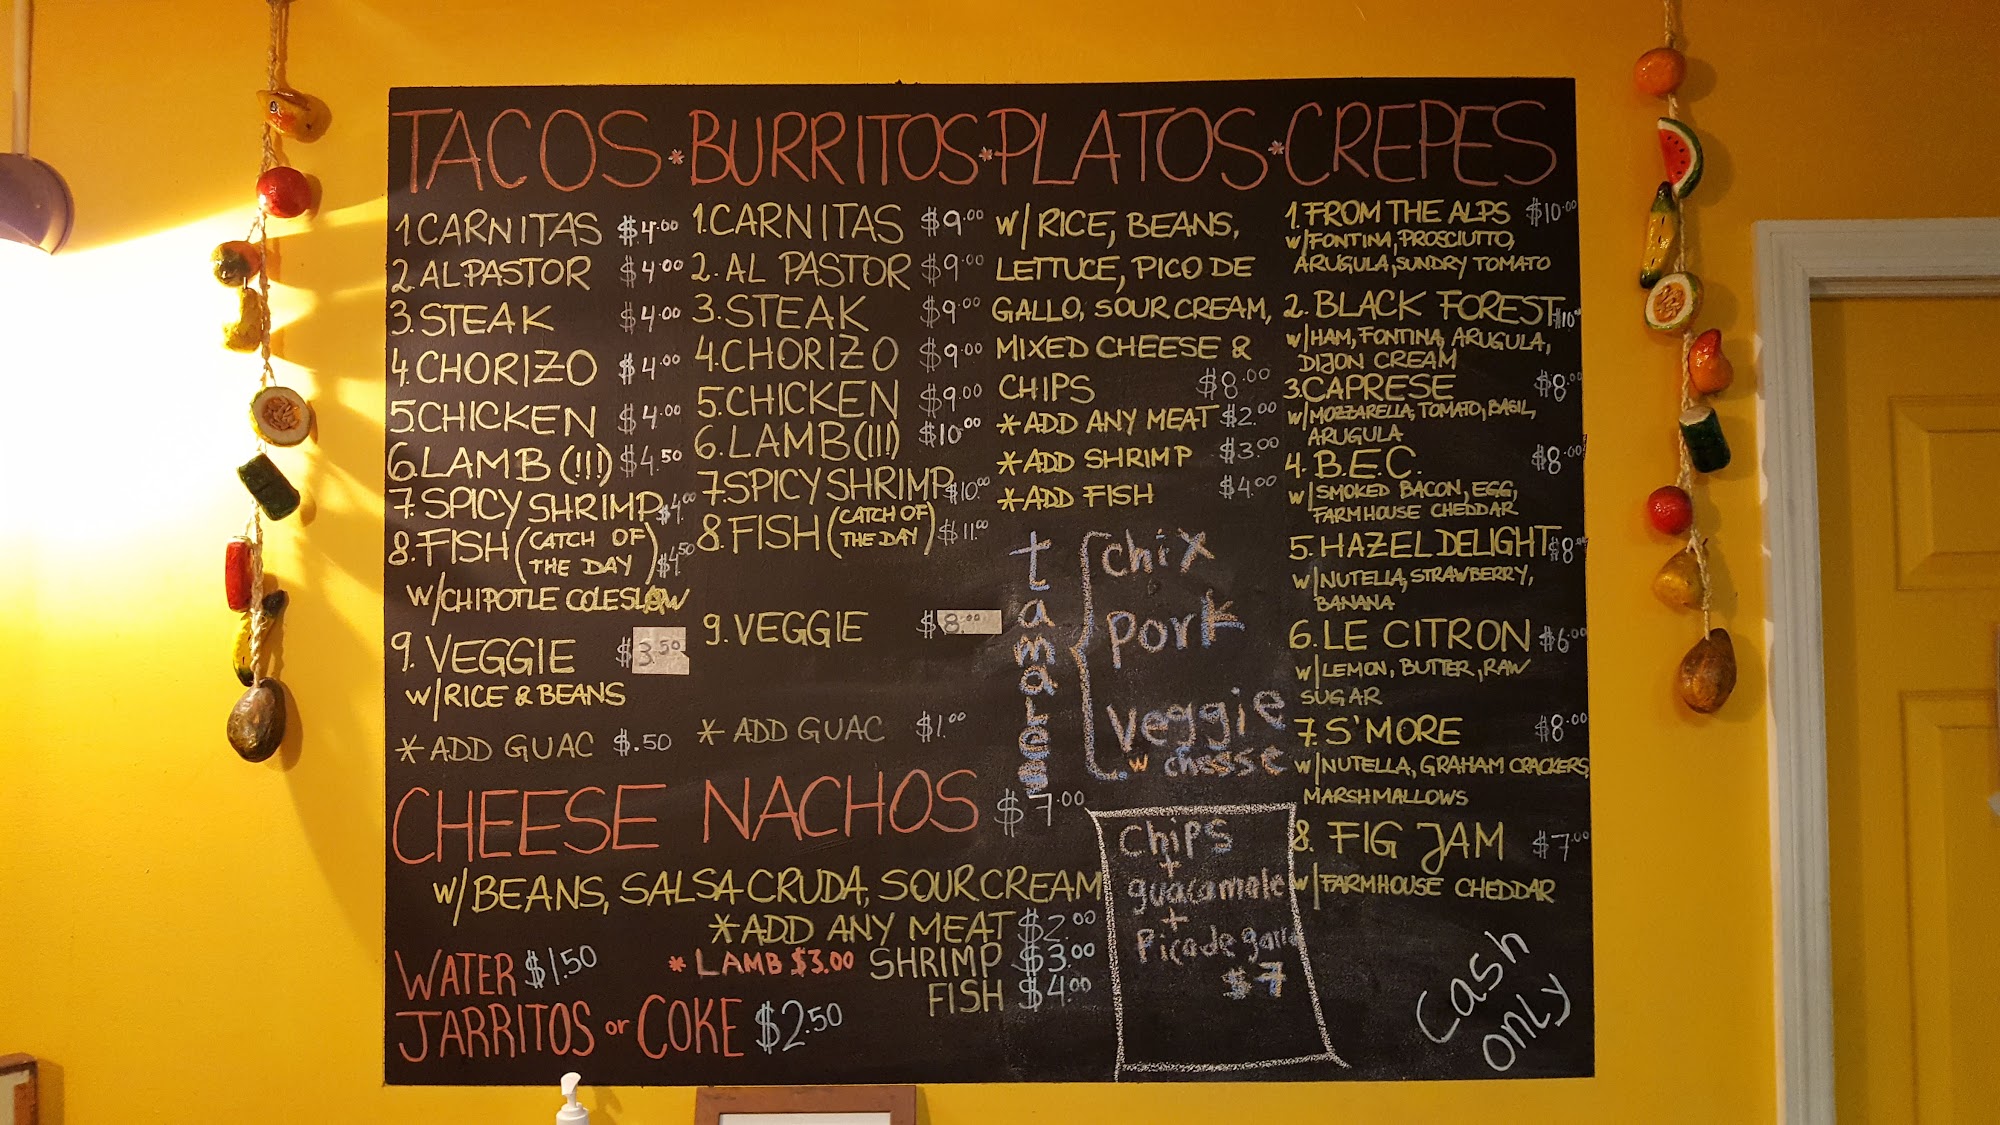 TACOS * BURRITOS * PLATOS * CREPES
1. CARNITAS $4.00
2. AL PASTOR $4.00
3. STEAK $4.00
4. CHORIZO $4.00
5. CHICKEN $4.00
6. LAMB (!!!) $4.50
7. SPICY SHRIMP $4.00
8. FISH (CATCH OF THE DAY) $4.50
W/CHIPOTLE COLESLAW
9. VEGGIE $3.50
W/RICE & BEANS
* ADD GUAC $.50
1. CARNITAS $9.00
2. AL PASTOR $9.00
3. STEAK $9.00
4. CHORIZO $9.00
5. CHICKEN $9.00
6. LAMB (!!!) $10.00
7. SPICY SHRIMP $10.00
8. FISH (CATCH OF THE DAY) $11.00
9. VEGGIE $8.00
* ADD GUAC $1.00
W/RICE, BEANS,
LETTUCE, PICO DE
GALLO, SOUR CREAM,
MIXED CHEESE &
CHIPS $8.00
*ADD ANY MEAT $2.00
*ADD SHRIMP $3.00
*ADD FISH $4.00
tamales
chix
pork
veggie
w cheese
1. FROM THE ALPS $10.00
W/FONTINA, PROSCIUTTO,
ARUGULA, SUNDRY TOMATO
2. BLACK FOREST $10.00
W/HAM, FONTINA, ARUGULA,
DIJON CREAM
3. CAPRESE $8.00
W/MOZZARELLA, TOMATO, BASIL,
ARUGULA
4. B.E.C. $8.00
W/SMOKED BACON, EGG,
FARMHOUSE CHEDDAR
5. HAZEL DELIGHT $8.00
W/NUTELLA, STRAWBERRY,
BANANA
6. LE CITRON $6.00
W/LEMON, BUTTER, RAW
SUGAR
7. S'MORE $8.00
W/NUTELLA, GRAHAM CRACKERS,
MARSHMALLOWS
8. FIG JAM $7.00
W/FARMHOUSE CHEDDAR
CHEESE NACHOS $7.00
W/BEANS, SALSA CRUDA, SOUR CREAM
*ADD ANY MEAT $2.00
* LAMB $3.00 SHRIMP $3.00
FISH $4.00
WATER $1.50
JARRITOS or COKE $2.50
Chips
+
guacamole
+
Pico de gallo
$7
Cash
only